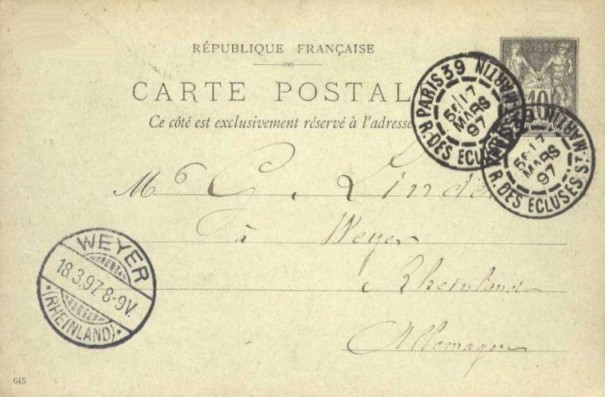 RÉPUBLIQUE FRANÇAISE
CARTE POSTAL
Ce côté est exclusivement réservé à l'adresse
POSTE
10
PARIS 39
R. DES ECLUSES ST MARTIN
5E 17
MARS
97
PARIS 39
R. DES ECLUSES ST MARTIN
5E 17
MARS
97
G. Linden
à Weyer
Rheinland
Allemagne
WEYER
18.3.97. 8-9V.
(RHEINLAND)
645